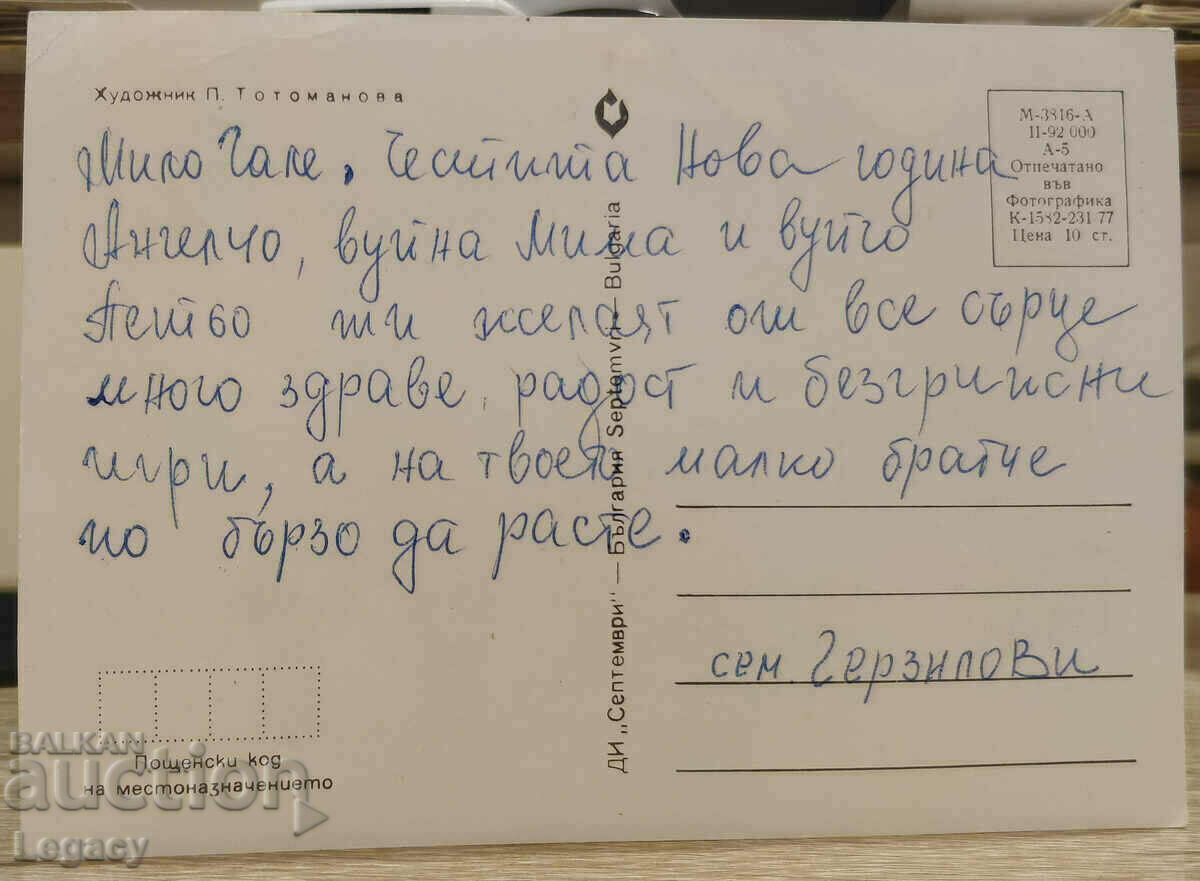 Художник П. Тотоманова
М-3816-А
II-92 000
А-5
Отпечатано
във
Фотографика
К-1582-231-77
Цена 10 ст.
Мило Гале, Честита Нова година
Ангелчо, вуйна Мима и вуйчо
ти желаят от все сърце
много здраве, радост и безгрижни
игри, а на твоето малко братче
по бързо да расте.
сем. Герзилови
ДИ „Септември" — България Septemvri — Bulgaria
Пощенски код
на местоназначението
BALKAN
auction
Legacy